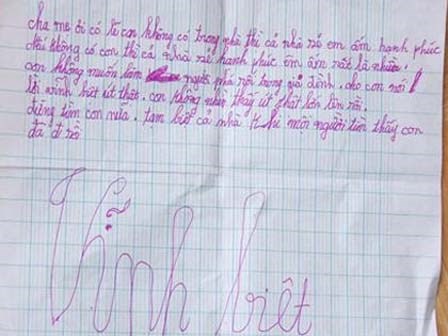 cha mẹ ơi có lẽ con không có trong nhà thì cả nhà sẽ em ấm hạnh phúc
nếu không có con thì cả nhà sẽ hạnh phúc em ấm rất là nhiều.
con không muốn làm người phá rối trong gia đình. cho con nói 1
lời vĩnh biệt út. con không nhìn thấy út lớn lên rồi.
đừng tìm con nữa. tạm biệt cả nhà khi mọi người tìm thấy con
đã đi rồi
Vĩnh biệt